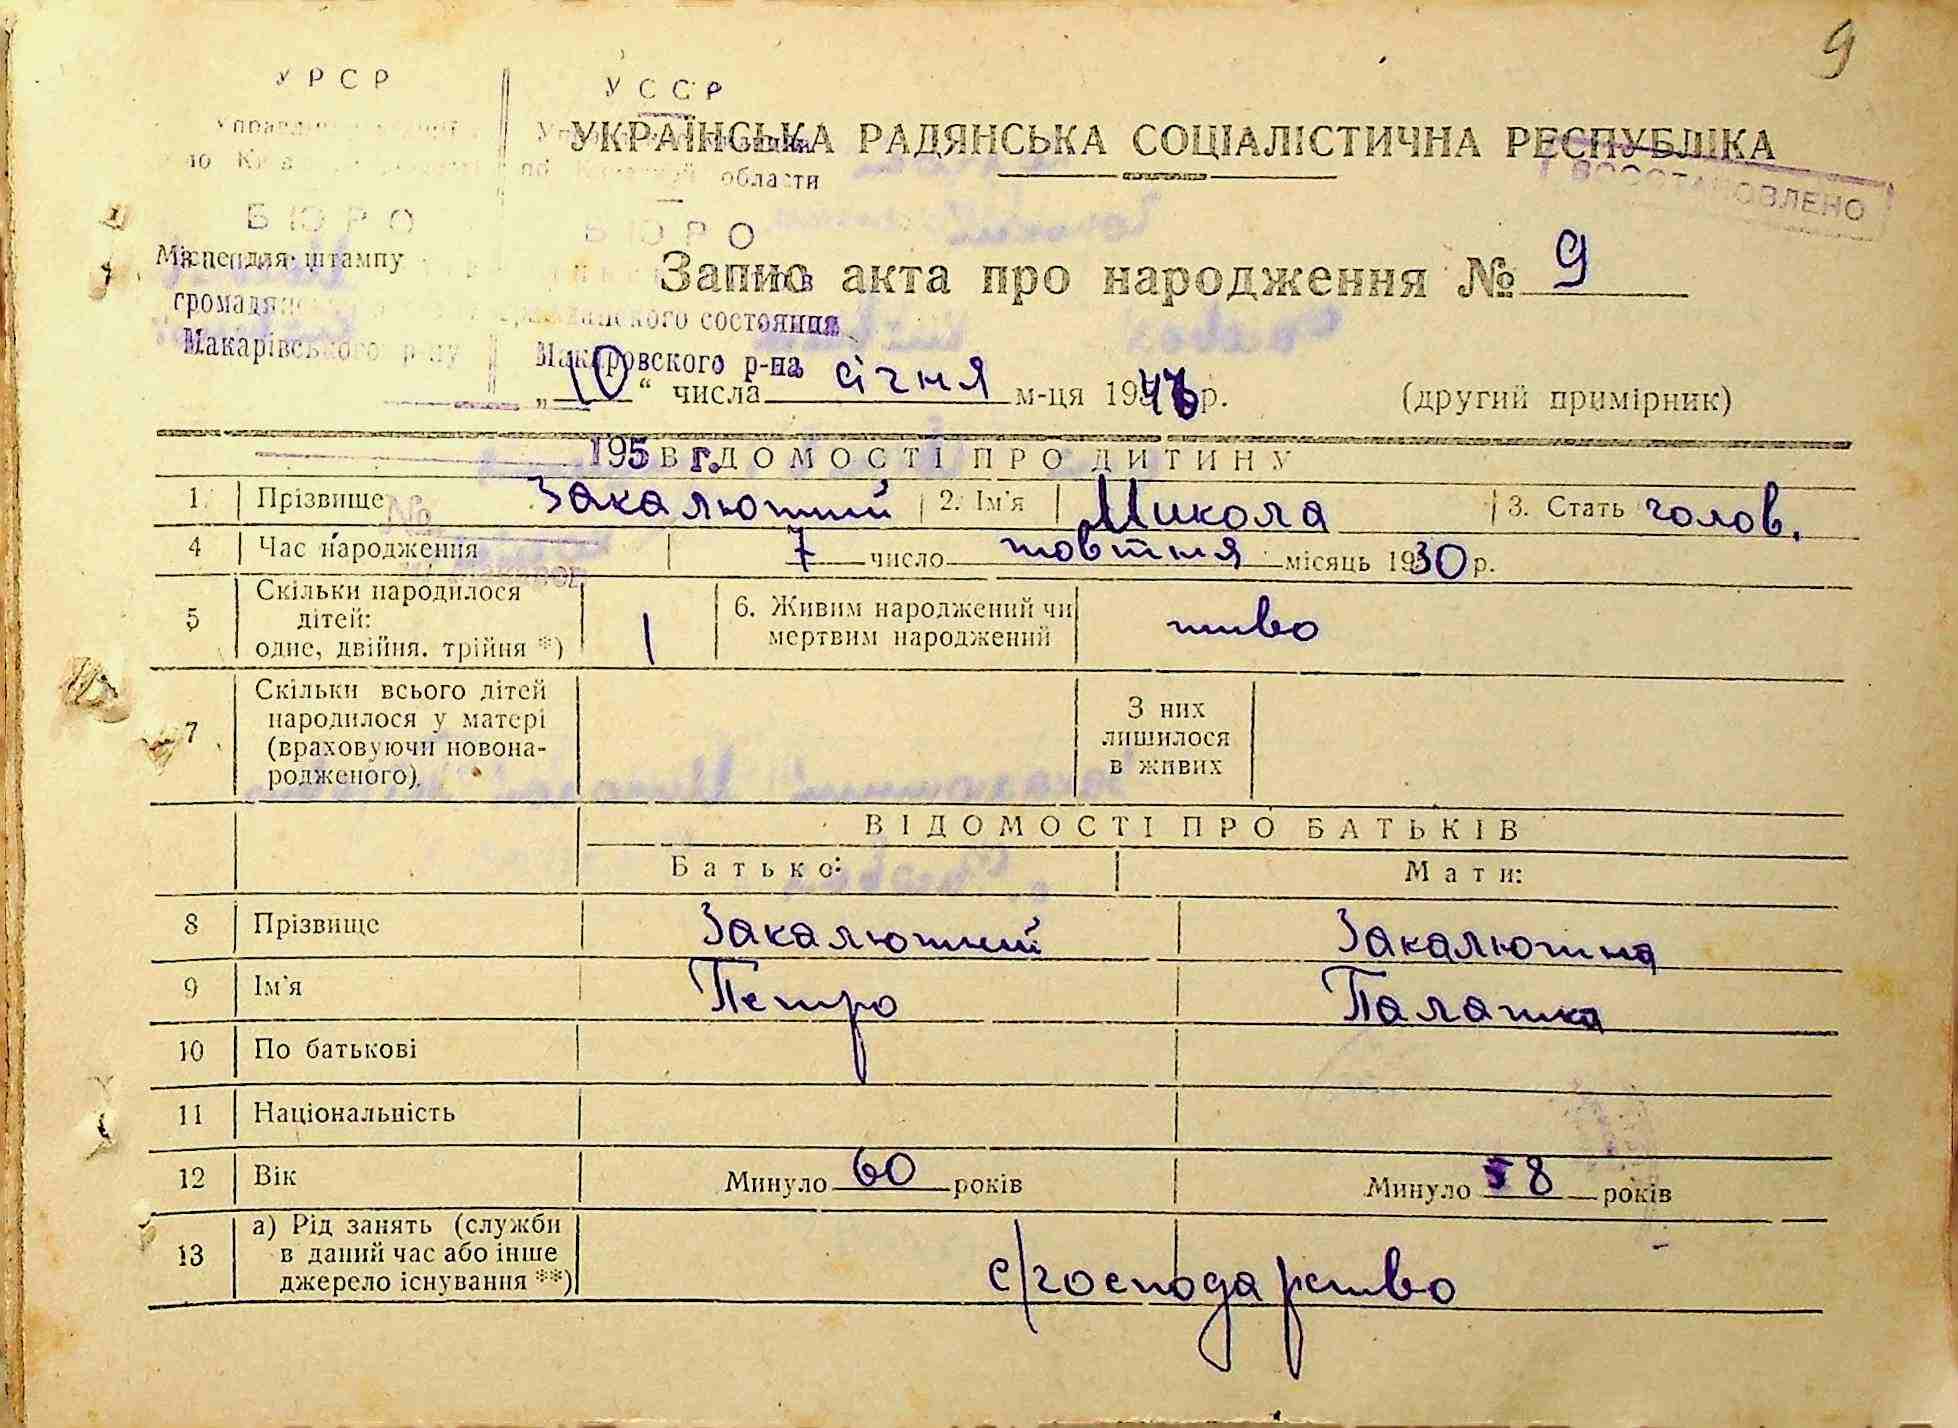 9
УРСР
УССР
УКРАЇНСЬКА РАДЯНСЬКА СОЦІАЛІСТИЧНА РЕСПУБЛІКА
области
ВОССТАНОВЛЕНО
БЮРО
БЮРО
Місце для штампу
Запис акта про народження № 9
громадян
состояния
Макарівського р-ну
Макаровского р-на
„10“ числа січня м-ця 194 р.
(другий примірник)
195 г.
ВІДОМОСТІ ПРО ДИТИНУ
1. Прізвище Закалюжний 2. Ім'я Микола 3. Стать чолов.
4 Час народження 7 число жовтня місяць 1930 р.
5 Скільки народилося дітей: одне, двійня, трійня *) 1 6. Живим народжений чи мертвим народжений живо
7 Скільки всього дітей народилося у матері (враховуючи новонародженого). З них лишилося в живих
ВІДОМОСТІ ПРО БАТЬКІВ
Батько: Мати:
8 Прізвище Закалюжний Закалюжна
9 Ім'я Петро Палажка
10 По батькові
11 Національність
12 Вік Минуло 60 років Минуло 58 років
13 а) Рід занять (служби в даний час або інше джерело існування **) с/господарство